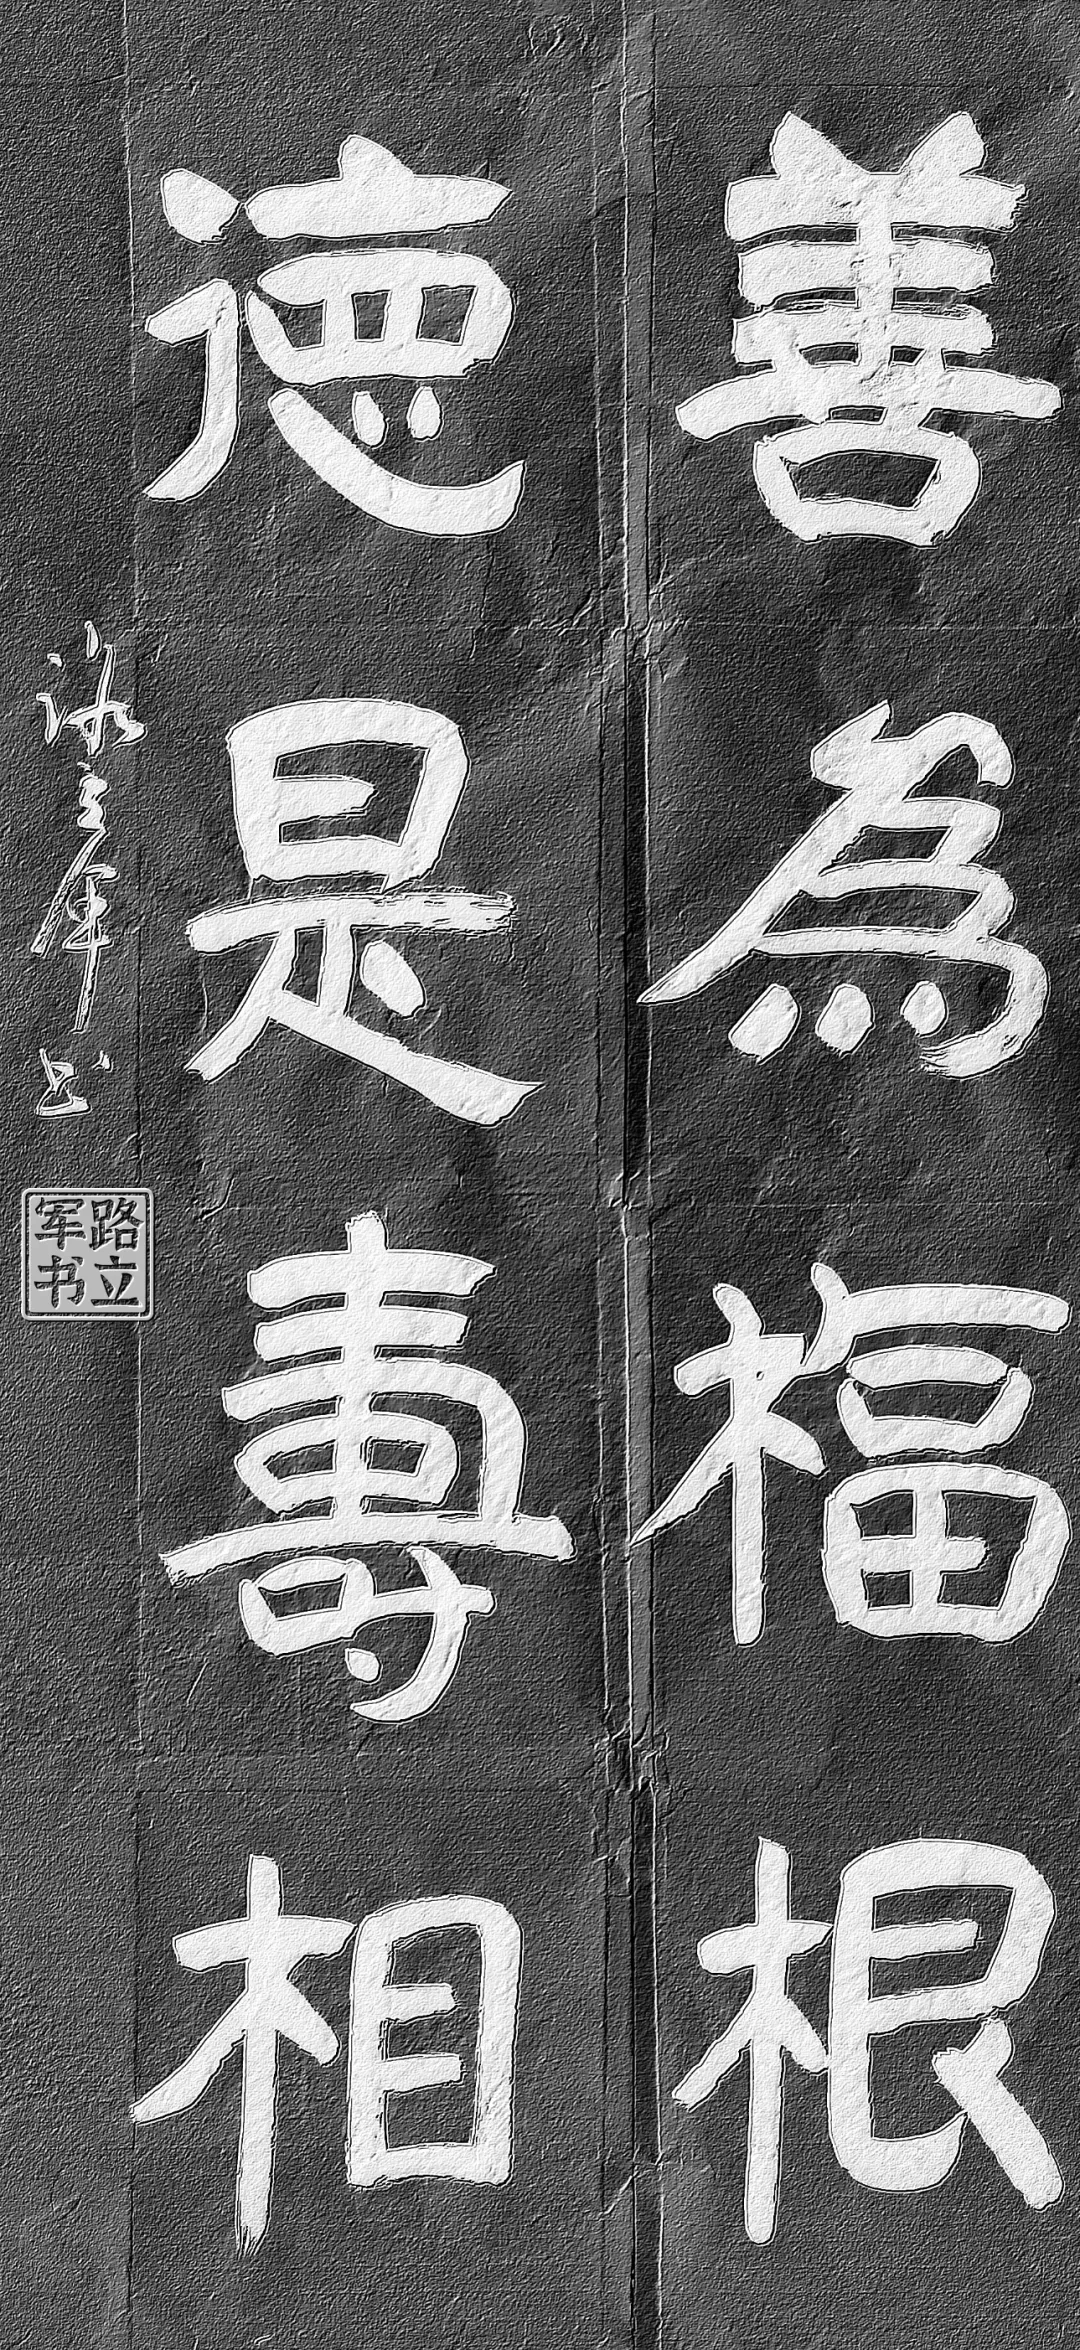 善為福根
德是壽相
路立军书
路立军书